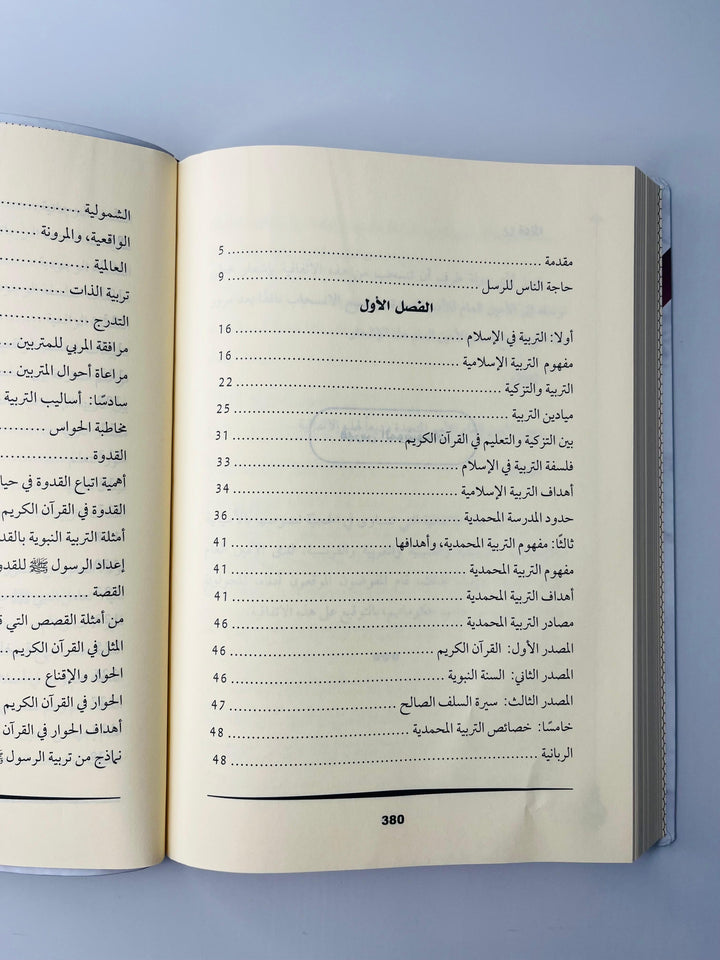 مقدمة ........ 5
حاجة الناس للرسل ........ 9
الفصل الأول
أولا: التربية في الإسلام ........ 16
مفهوم التربية الإسلامية ........ 16
التربية والتزكية ........ 22
ميادين التربية ........ 25
بين التزكية والتعليم في القرآن الكريم ........ 31
فلسفة التربية في الإسلام ........ 33
أهداف التربية الإسلامية ........ 34
حدود المدرسة المحمدية ........ 36
ثالثًا: مفهوم التربية المحمدية، وأهدافها ........ 41
مفهوم التربية المحمدية ........ 41
أهداف التربية المحمدية ........ 41
مصادر التربية المحمدية ........ 46
المصدر الأول: القرآن الكريم ........ 46
المصدر الثاني: السنة النبوية ........ 46
المصدر الثالث: سيرة السلف الصالح ........ 47
خامسًا: خصائص التربية المحمدية ........ 48
الربانية ........ 48
380
الشمولية ........
الواقعية، والمرونة ........
العالمية ........
تربية الذات ........
التدرج ........
مرافقة المربي للمتربين ...
مراعاة أحوال المتربين ...
سادسًا: أساليب التربية
مخاطبة الحواس ........
القدوة ........
أهمية اتباع القدوة في
القدوة في القرآن الكريم
أمثلة التربية النبوية
إعداد الرسول ﷺ
القصة ........
من أمثلة القصص التي
المثل في القرآن الكريم ...
الحوار والإقناع ........
الحوار في القرآن الكريم
أهداف الحوار في القرآن
نماذج من تربية الرسول